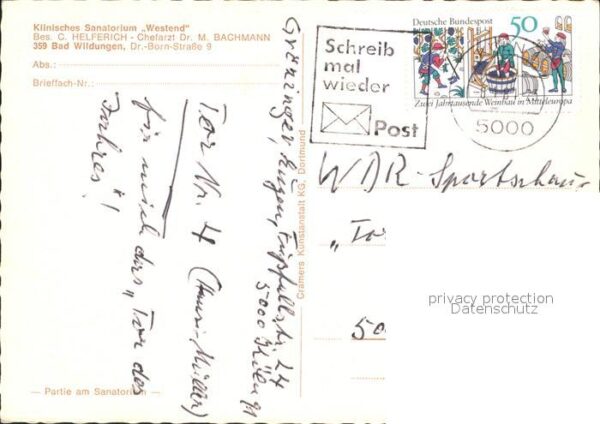 Klinisches Sanatorium „Westend"
Bes. C. HELFERICH - Chefarzt Dr. M. BACHMANN
359 Bad Wildungen, Dr.-Born-Straße 9
Abs.:
Brieffach-Nr.:
Tor Nr. 4 (Hansi Müller)
für mich das „Tor des
Jahres"!
— Partie am Sanatorium —
Grözinger, Eugen,
5000 Köln 91
Cramers Kunstanstalt KG, Dortmund
Schreib
mal
wieder
Post
Deutsche Bundespost 50
Zwei Jahrtausende Weinbau in Mitteleuropa
5000
WDR-Sportschau
„Tor
50
privacy protection
Datenschutz